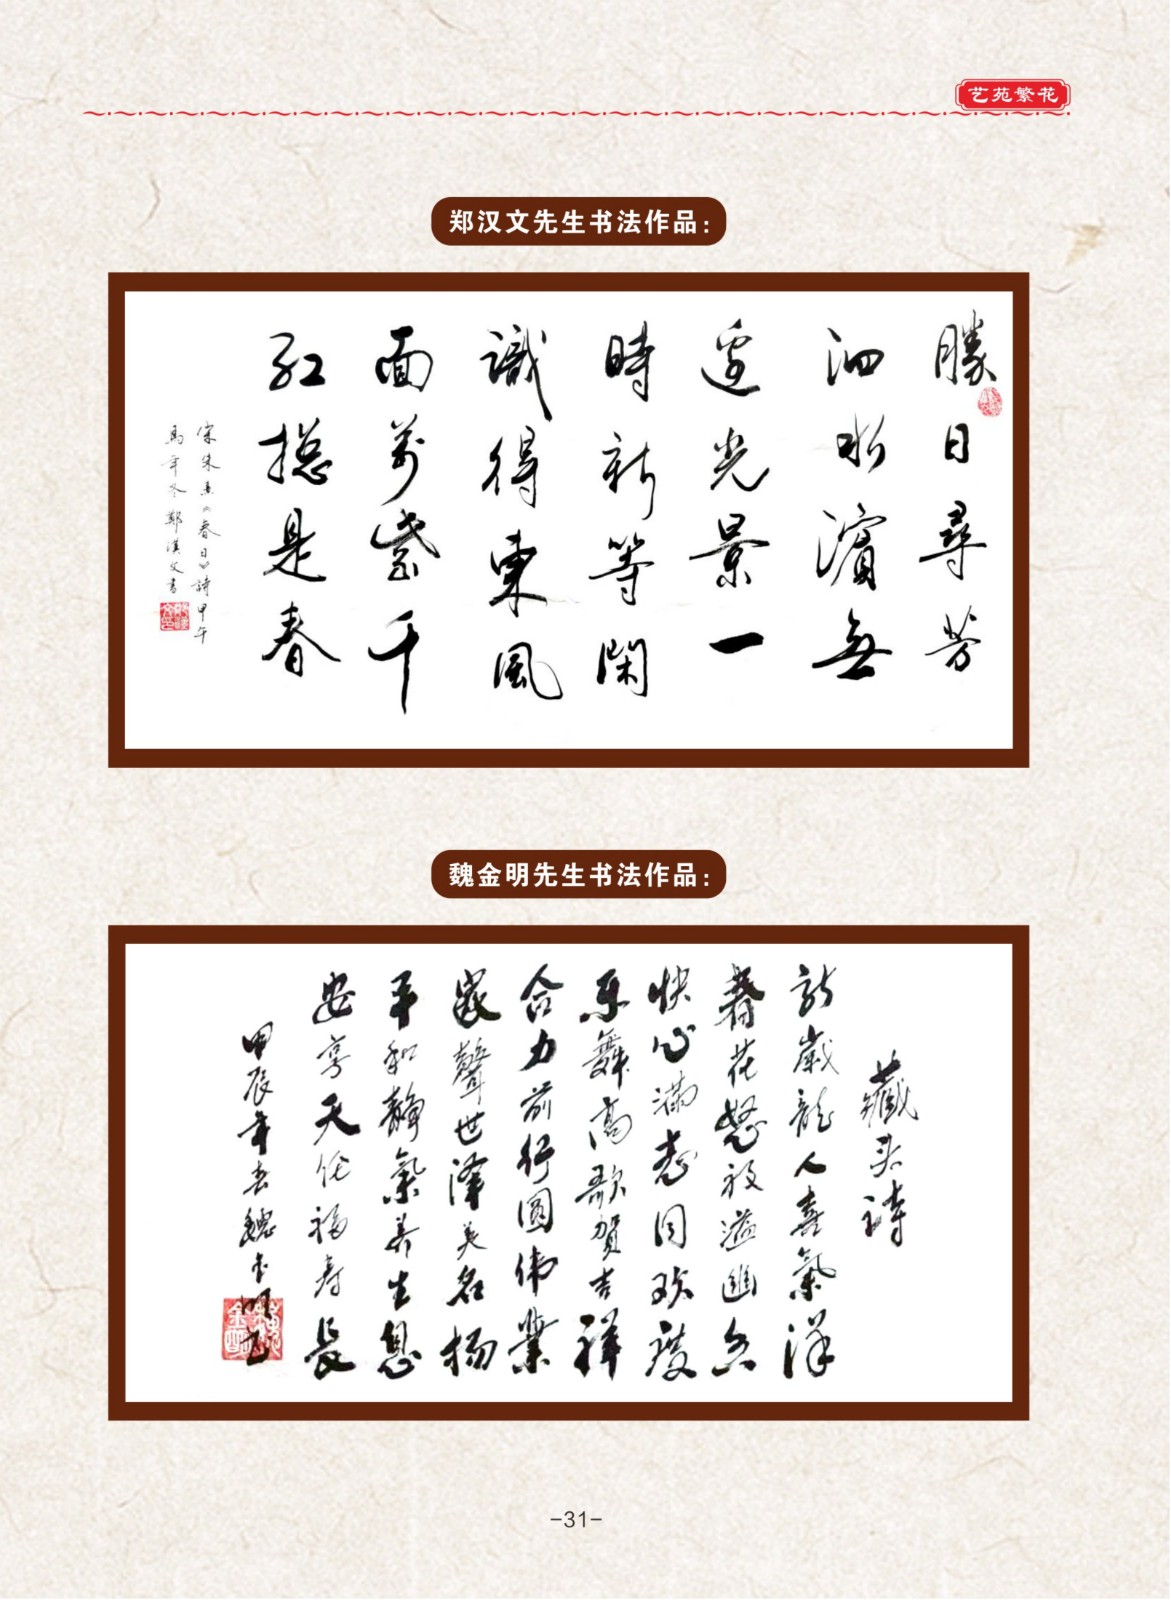 艺苑繁花
郑汉文先生书法作品：
勝日尋芳
泗水濱無
邊光景一
時新等閑
識得東風
面萬紫千
紅揔是春
宋朱熹《春日》詩甲午
馬年冬鄭漢文書
魏金明先生书法作品：
藏头诗
新歲龍人喜氣洋
春花怒放溢幽香
快心滿志同欢度
乐舞高歌賀吉祥
合力前行圆伟業
家聲世泽美名扬
平和靜氣养生息
安享天伦福寿長
甲辰年春魏金明书
-31-